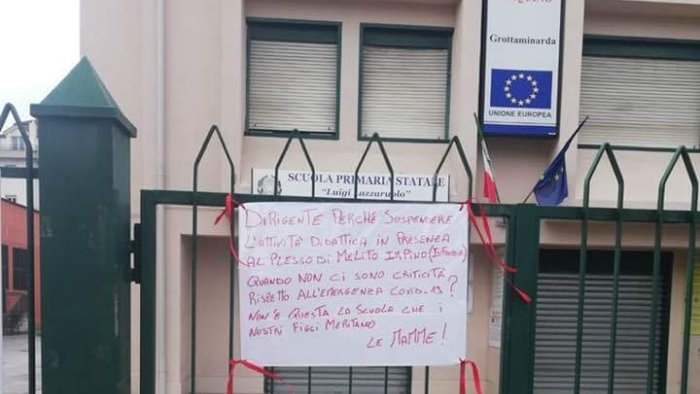 Grottaminarda
UNIONE EUROPEA
SCUOLA PRIMARIA STATALE
"Luigi
DIRIGENTE PERCHÈ SOSPENDERE
L'ATTIVITÀ DIDATTICA IN PRESENZA
AL PLESSO DI MELITO IRPINO (INFANZIA)
QUANDO NON CI SONO CRITICITÀ
RISPETTO ALL'EMERGENZA COVID-19?
NON È QUESTA LA SCUOLA CHE I
NOSTRI FIGLI MERITANO
LE MAMME!